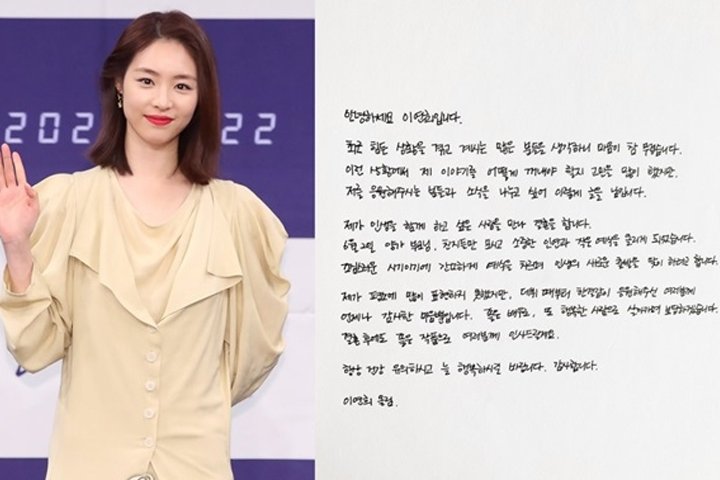 202 22
안녕하세요 이연희입니다.
최근 힘든 상황을 겪고 계시는 많은 분들을 생각하니 마음이 참 무겁습니다.
이런 상황에서 제 이야기를 어떻게 꺼내야 할지 고민을 많이 했지만,
저를 응원해주시는 분들과 소식을 나누고 싶어 이렇게 글을 남깁니다.
제가 인생을 함께 하고 싶은 사람을 만나 결혼을 합니다.
6월 2일 양가 부모님, 친지들만 모시고 소중한 인연과 작은 예식을 올리게 되었습니다.
조심스러운 시기이기에 간소하게 예식을 치르며 인생의 새로운 출발을 맞이 하려고 합니다.
제가 그동안 많이 표현하지 못했지만, 데뷔 때부터 한결같이 응원해주신 여러분께
언제나 감사한 마음뿐입니다. 좋은 배우로, 또 행복한 사람으로 살아가며 보답하겠습니다.
결혼 후에도 좋은 작품으로 여러분께 인사드릴게요.
항상 건강 유의하시고 늘 행복하시길 바랍니다. 감사합니다.
이연희 올림.